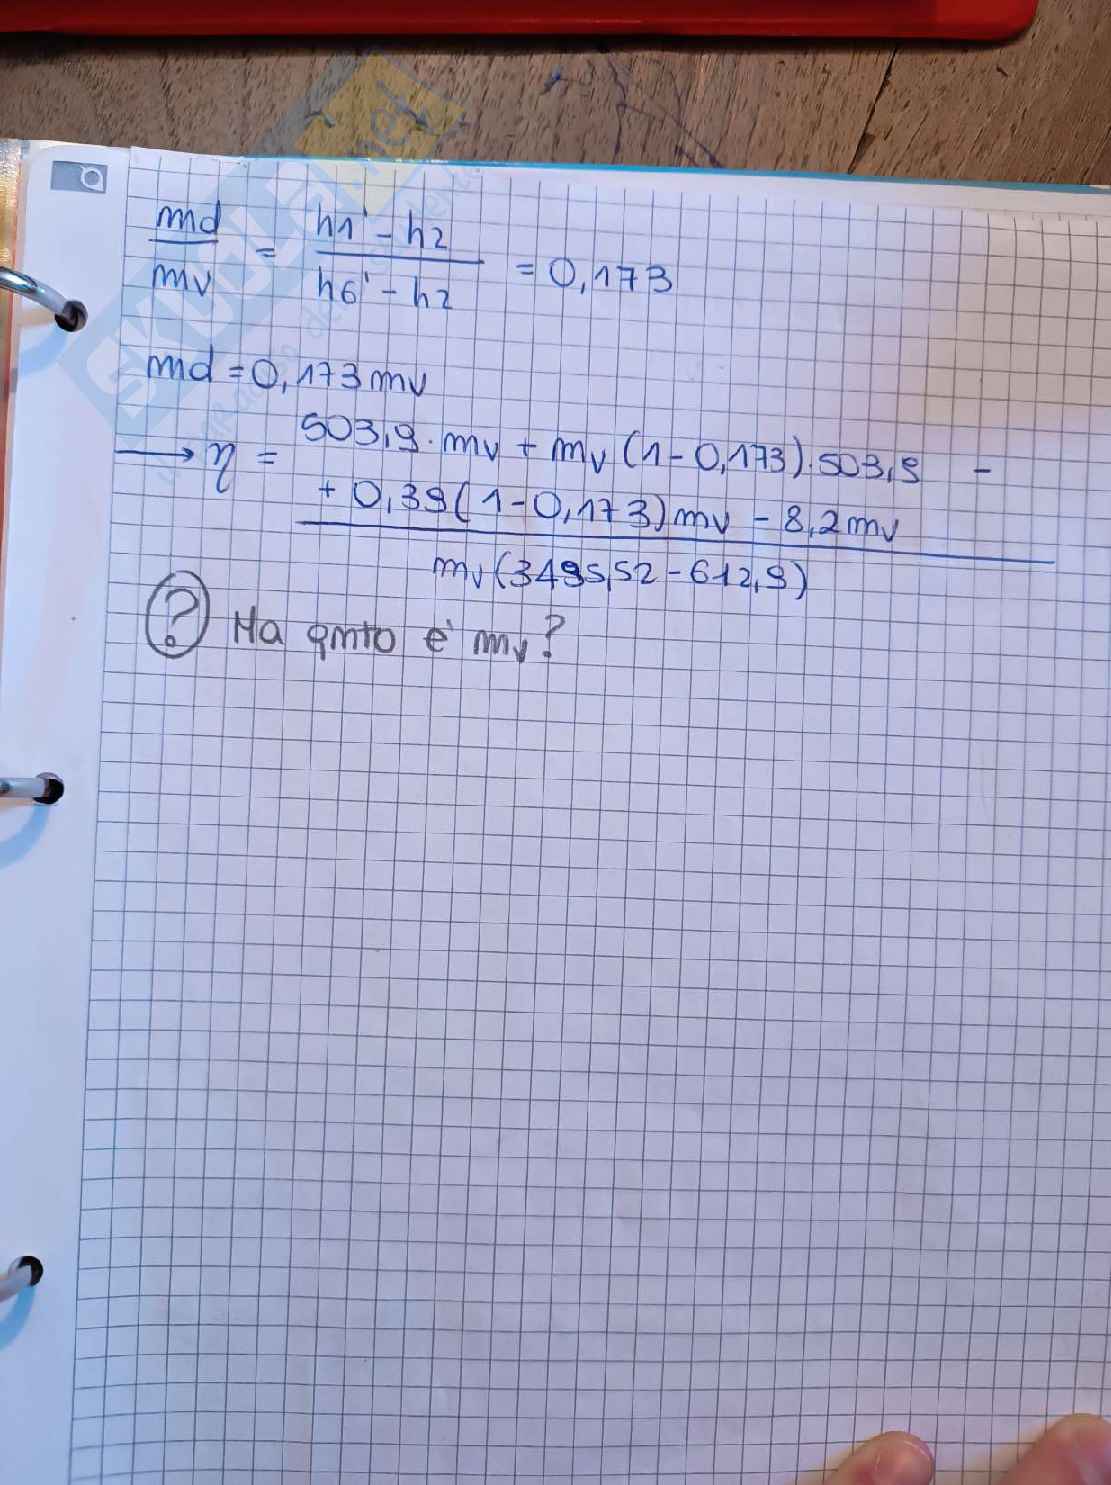 md/mv = (h1' - h2)/(h6' - h2) = 0,173
md = 0,173 mv
→ η = 503,9 · mv + mv (1 - 0,173) · 503,9 -
+ 0,39 (1 - 0,173) mv - 8,2 mv
mv (3495,52 - 612,9)
? Ma qnto è mv?
SKUOLA.net